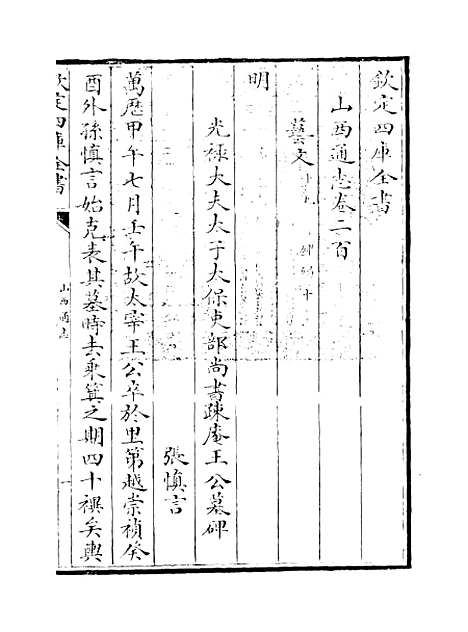 欽定四庫全書
山西通志卷二百
藝文
明
光祿大夫太子太保吏部尚書疎庵王公墓碑
張慎言
萬歷甲午七月壬午故太宰王公卒於里第越崇禎癸
酉外孫慎言始克表其墓時去乘箕之期四十禩矣輿
欽定四庫全書
山西通志
一